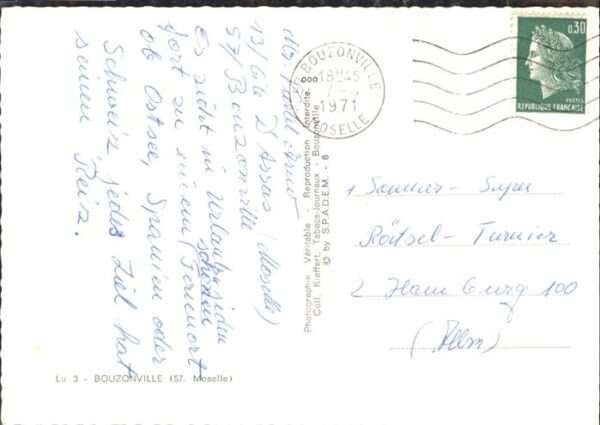 13/66 D'Assas
57/Bouzonville (Moselle)
Es zieht in Urlaubsfieden
schöne
fort zu einem Ferienort
ob Ostsee, Spanien oder
Schweiz, jedes Ziel hat
seinen Reiz.
57 BOUZONVILLE
18H45
1971
MOSELLE
0,30
POSTES
REPUBLIQUE FRANÇAISE
Photographie Véritable - Reproduction Interdite.
Coll. Kieffert, Tabacs-Journaux - Bouzonville
© by S.P.A.D.E.M. - 6
1 Sommer- Super
Rätsel- Turnier
2 Hamburg 100
Lu 3 - BOUZONVILLE (57. Moselle)